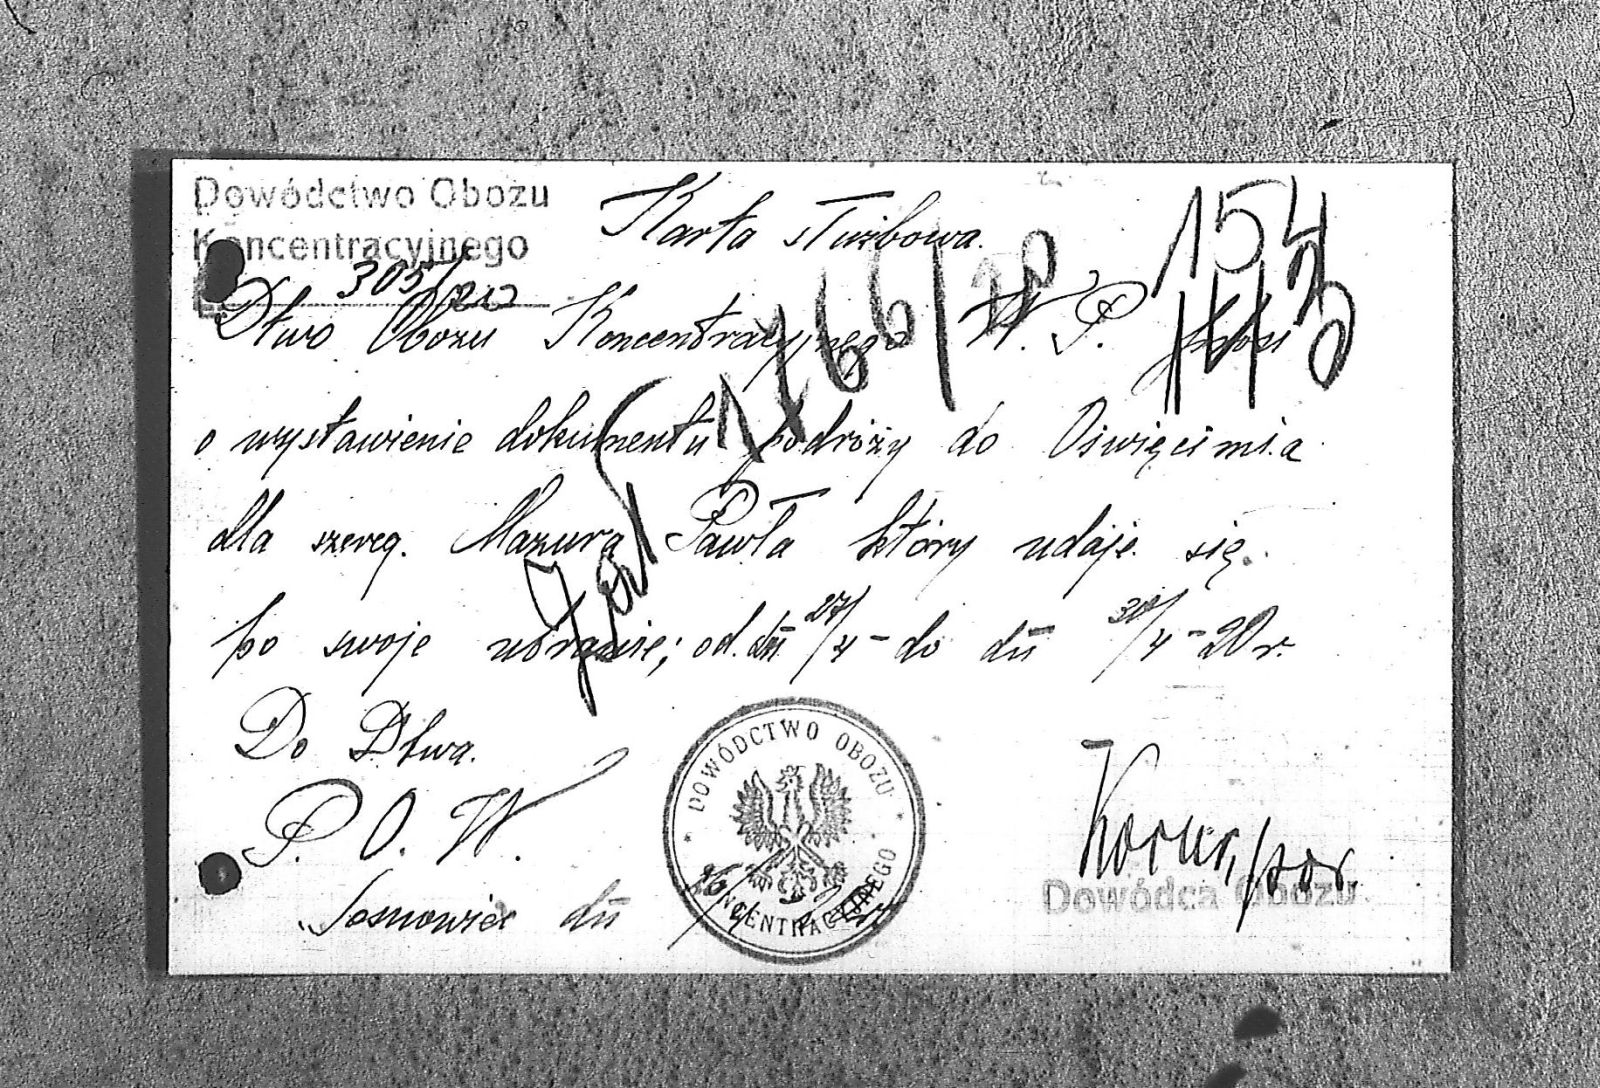 Dowództwo Obozu
Koncentracyjnego
305/
Karta służbowa.
154
1166/20
Dtwo Obozu Koncentracyjnego W. P. prosi
o wystawienie dokumentu podróży do Oświęcimia
dla szereg. Mazura Pawła który udaje się.
po swoje ubranie; od. dń 27/4 - do dń 30/4 - 20 r.
Do Dtwa.
P. O. W.
Sosnowiec dń 26/4
DOWÓDCTWO OBOZU
KONCENTRACYJNEGO
por.
Dowódca Obozu